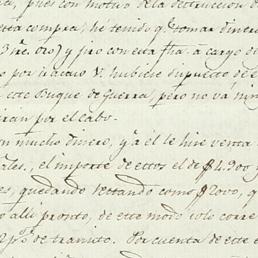 pues con motivo de la destruccion d
esta compra, he tenido qe. tomar dinero
3 rs. oro) y giro con esta fha. a cargo d
o por si acaso V. hubiese supuesto de
este Buque de Guerra, pero no vá nin
irán por el cabo.
on mucho dinero, y a el le hice venta
ales, el importe de estos el de $4.900 y
es, quedando restando como $2000, q
o alli pronto, de este modo solo corre
de transito. Por cuenta de este